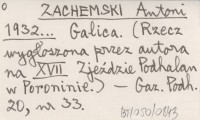 o
ZACHEMSKI Antoni
1932... Galica. (Rzecz
wygłoszona przez autora
na XVII Zjeździe Podhalan
w Poroninie.) — Gaz. Podh.
20, nr 33.